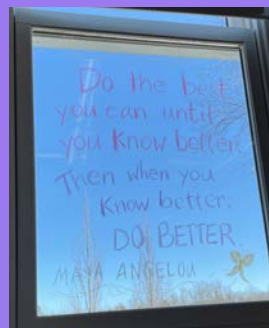 Do the best
you can until
you know better.
Then when you
know better.
DO BETTER.
MAYA ANGELOU